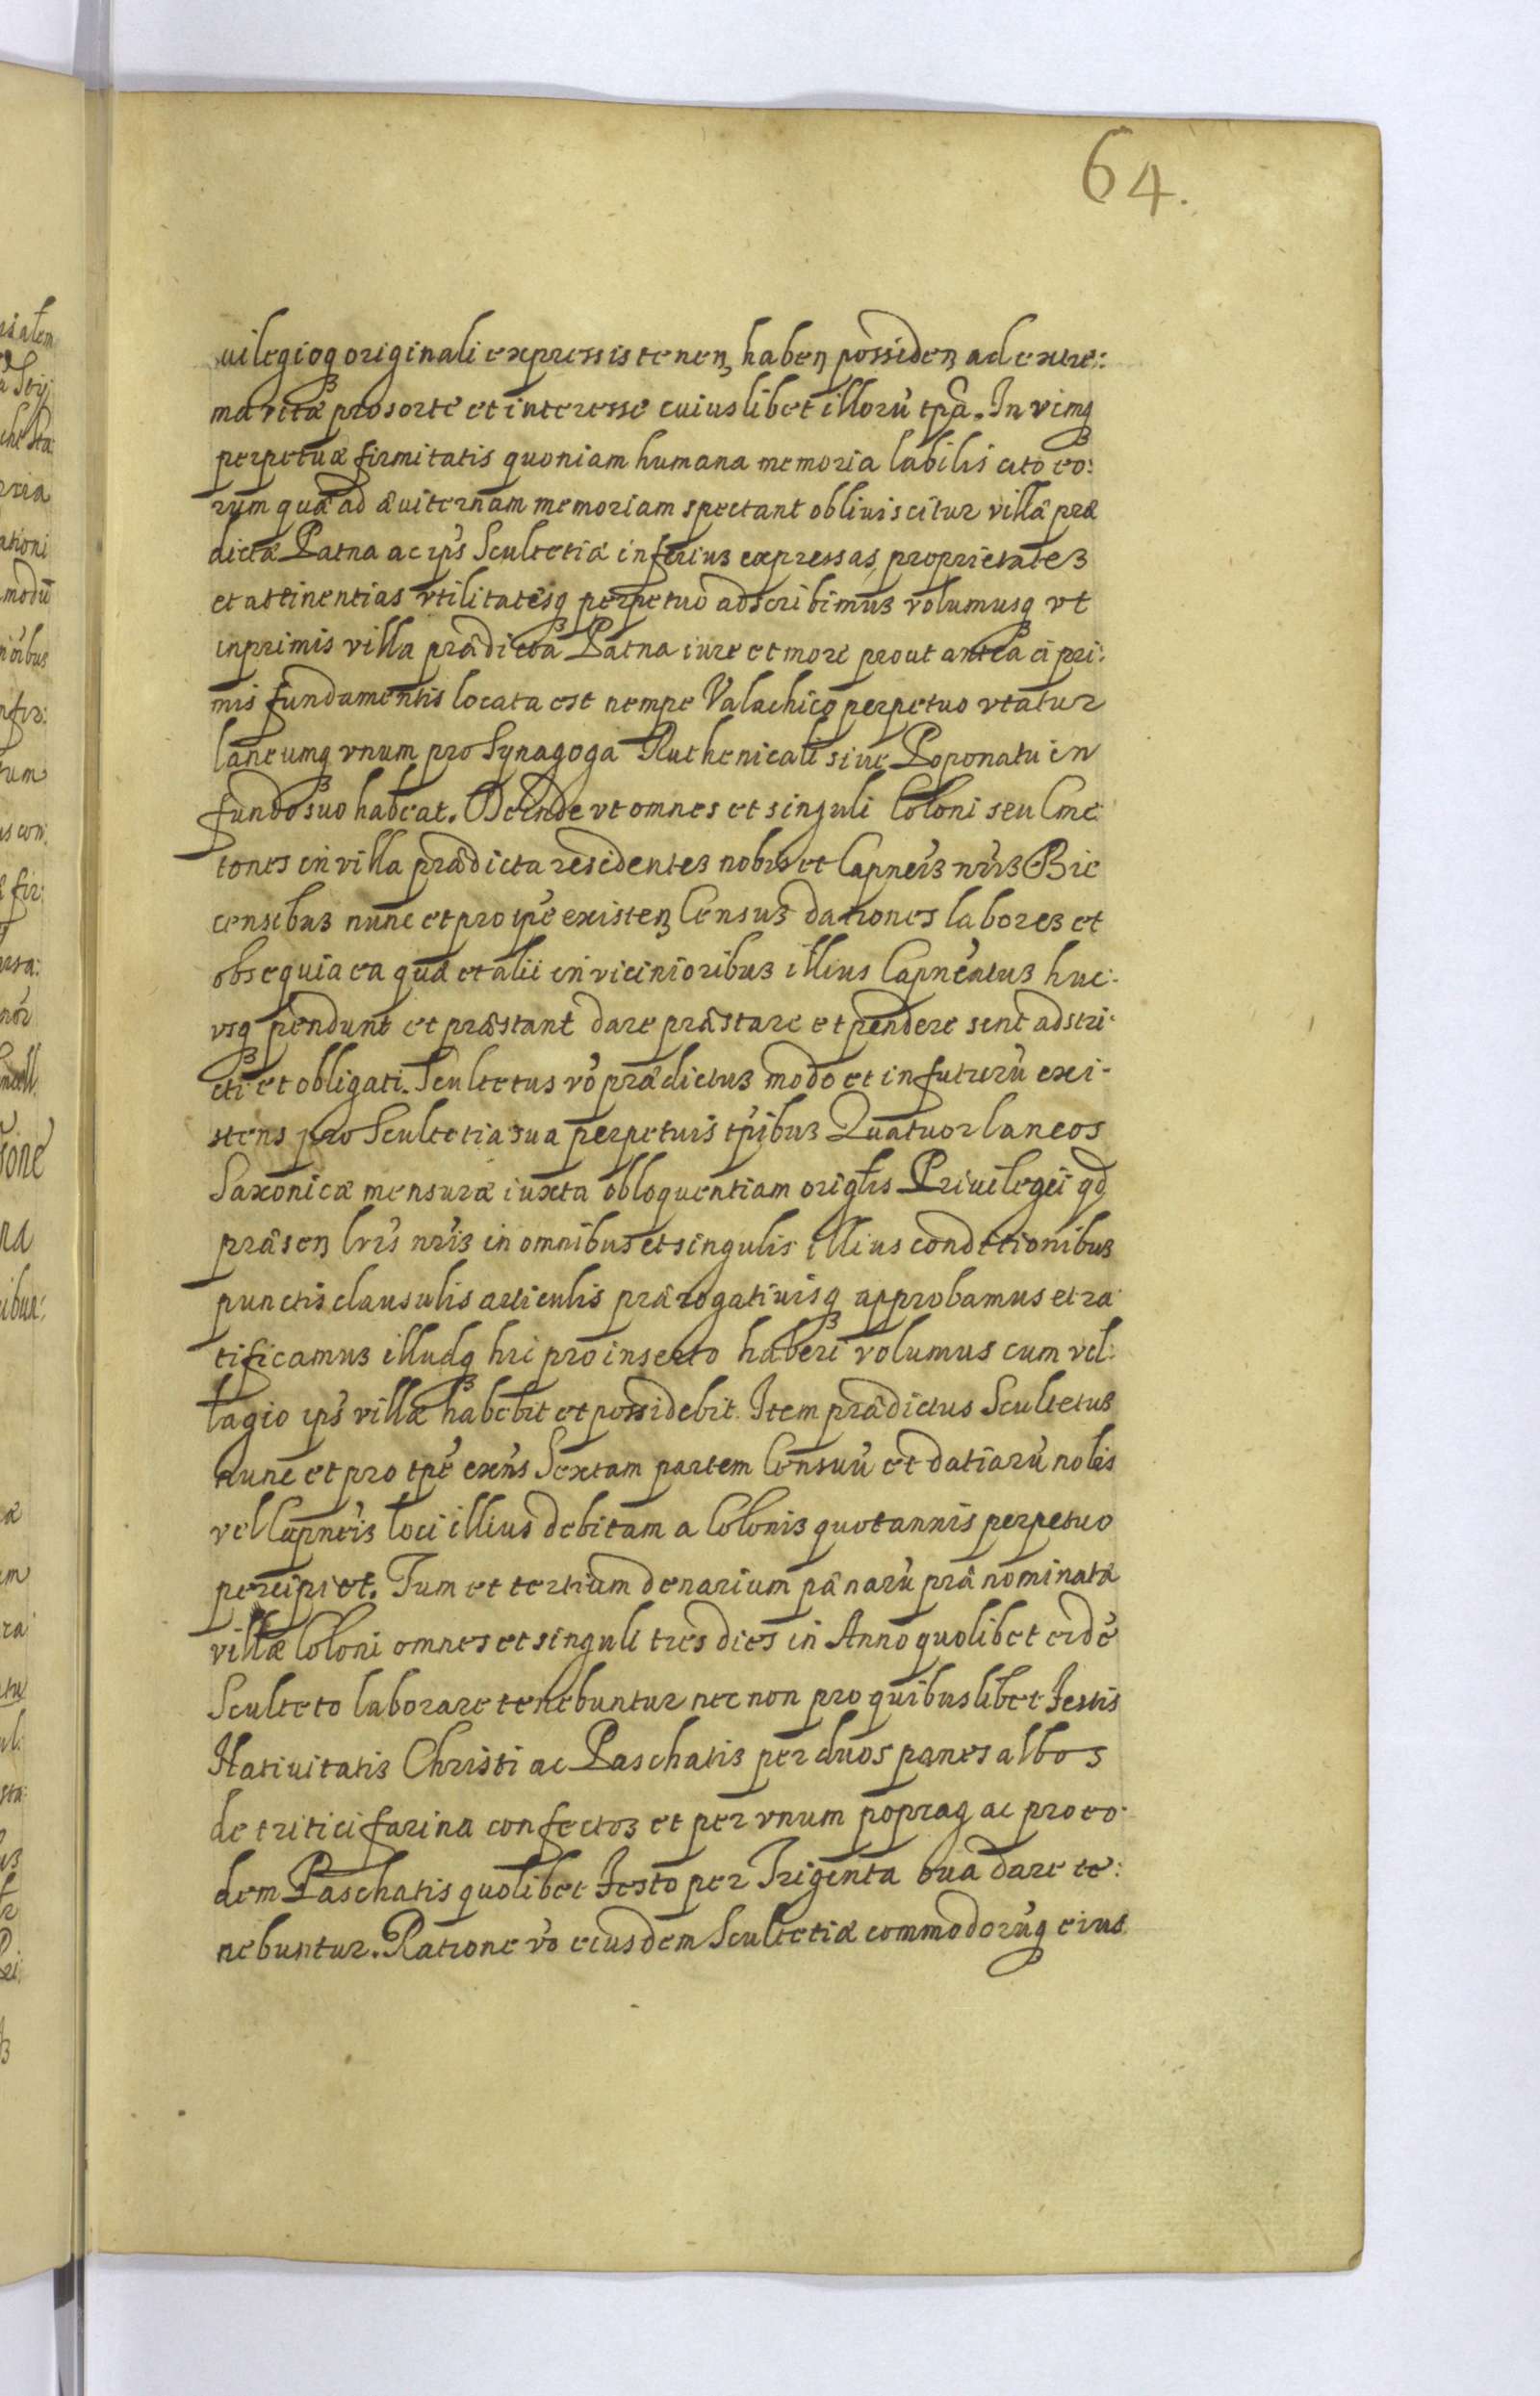 64.
uilegioq originali expressis tenen haben possiden ad extre:
ma vitæ pro sorte et interesse cuiuslibet illorū tpa. In vimq
perpetuæ firmitatis quoniam humana memoria labilis cito eo:
rum quæ ad æuiternam memoriam spectant obliuiscitur villæ præ
dictæ Patna ac ips Scultetiæ inferius expressas proprietates
et attinentias vtilitatesq perpetuo adscribimus volumusq vt
inprimis villa prædicta Patna iure et more prout antea a pri:
mis fundamentis locata est nempe Valachico perpetuo vtatur
laneumq vnum pro Synagoga Ruthenicali siue Poponatu in
fundo suo habeat. Deinde vt omnes et singuli Coloni seu Cme
tones in villa prædicta residentes nobis et Capneis nris Bie
censibus nunc et pro tpe existen Census dationes labores et
obsequia ea quæ et alii in vicinioribus illius Capneatus huc:
vsq pendunt et præstant dare præstare et pendere sint adstri:
cti et obligati. Scultetus vo prædictus modo et in futurū exi-
stens pro Scultetia sua perpetuis tpibus Quatuor laneos
Saxonicæ mensuræ iuxta obloquentiam origlis Priuilegii qd
præsen lris nris in omnibus et singulis illius conditionibus
punctis clausulis articulis prærogatiuisq approbamus et ra
tificamus illudq hic pro inserto haberi volumus cum vil:
lagio ips villæ habebit et possidebit. Item prædictus Scultetus
nunc et pro tpe exns Sextam partem Censuū et datiarū nobis
vel Capneis loci illius debitam a Colonis quotannis perpetuo
percipiet. Tum et tertium denarium pænarū prænominatæ
villæ Coloni omnes et singuli tres dies in Anno quolibet eidē
Sculteto laborare tenebuntur nec non pro quibuslibet Festis
Natiuitatis Christi ac Paschatis per duos panes albos
de tritici farina confectos et per vnum poprag ac pro eo
dem Paschatis quolibet Festo per Triginta oua dare te:
nebuntur. Ratione vo eiusdem Scultetiæ commodorūq eius